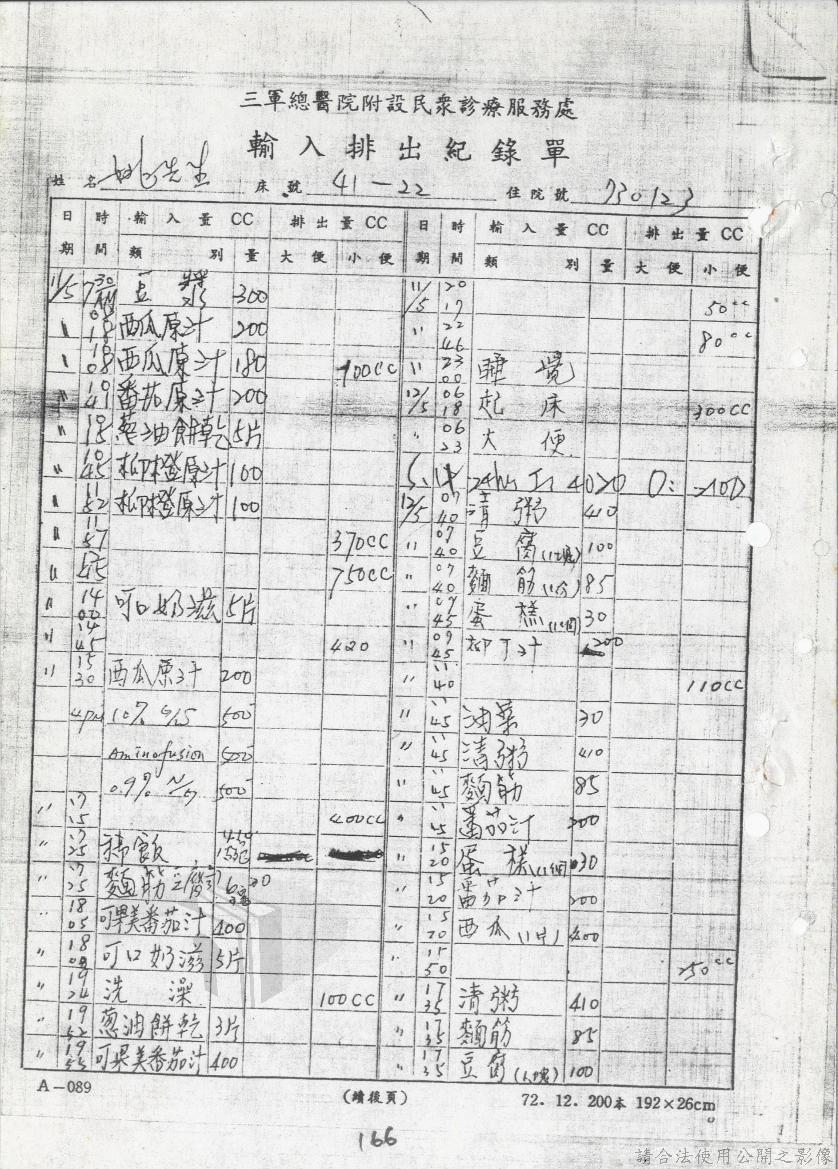 三軍總醫院附設民衆診療服務處
輸入排出紀錄單
姓名 姚先生 床號 41-22 住院號 730123
日期 時間 輸入量CC 類別 量 排出量CC 大便 小便
11/5 7 30 AM 豆漿 300
西瓜原汁 200
西瓜原汁 180 100CC
番茄原汁 200
蔥油餅乾 5片
10 45 柳橙原汁 100
11 52 柳橙原汁 100
11 57 370CC
750CC
14 00 可口奶滋 5片
14 45 420
15 30 西瓜原汁 200
4pm 10% G/S 500
Aminofusion 500
0.9% N/S 500
17 15 400CC
17 25
17 25 麵筋
18 05 可果美番茄汁 400
18 可口奶滋 5片
19 24 洗澡 100CC
19 52 蔥油餅乾 3片
19 55 可果美番茄汁 400
日期 時間 輸入量CC 類別 量 排出量CC 大便 小便
11/5 20 17 50cc
" 22 46 80cc
" 23 00 睡覺
12/5 06 18 起床 300CC
" 06 23 大便
24hrs I: 4020 O:
12/5 07 40 清粥 410
" 07 40 豆腐(1塊) 100
" 07 40 麵筋 85
" 09 45 蛋糕(1個) 30
" 09 45 柳丁汁 200
" 11 40 110CC
" 11 45 油菜 30
" 11 45 清粥 410
" 11 45 麵筋 85
" 11 45 蕃茄汁 200
" 15 20 蛋糕(1個) 30
" 15 20 蕃茄汁 200
" 15 20 西瓜(1片) 400
" 15 50 250cc
" 17 35 清粥 410
" 17 35 麵筋 85
" 17 35 豆腐(1塊) 100
A-089 (續後頁) 72.12.200本 192×26cm
166
請合法使用公開之影像